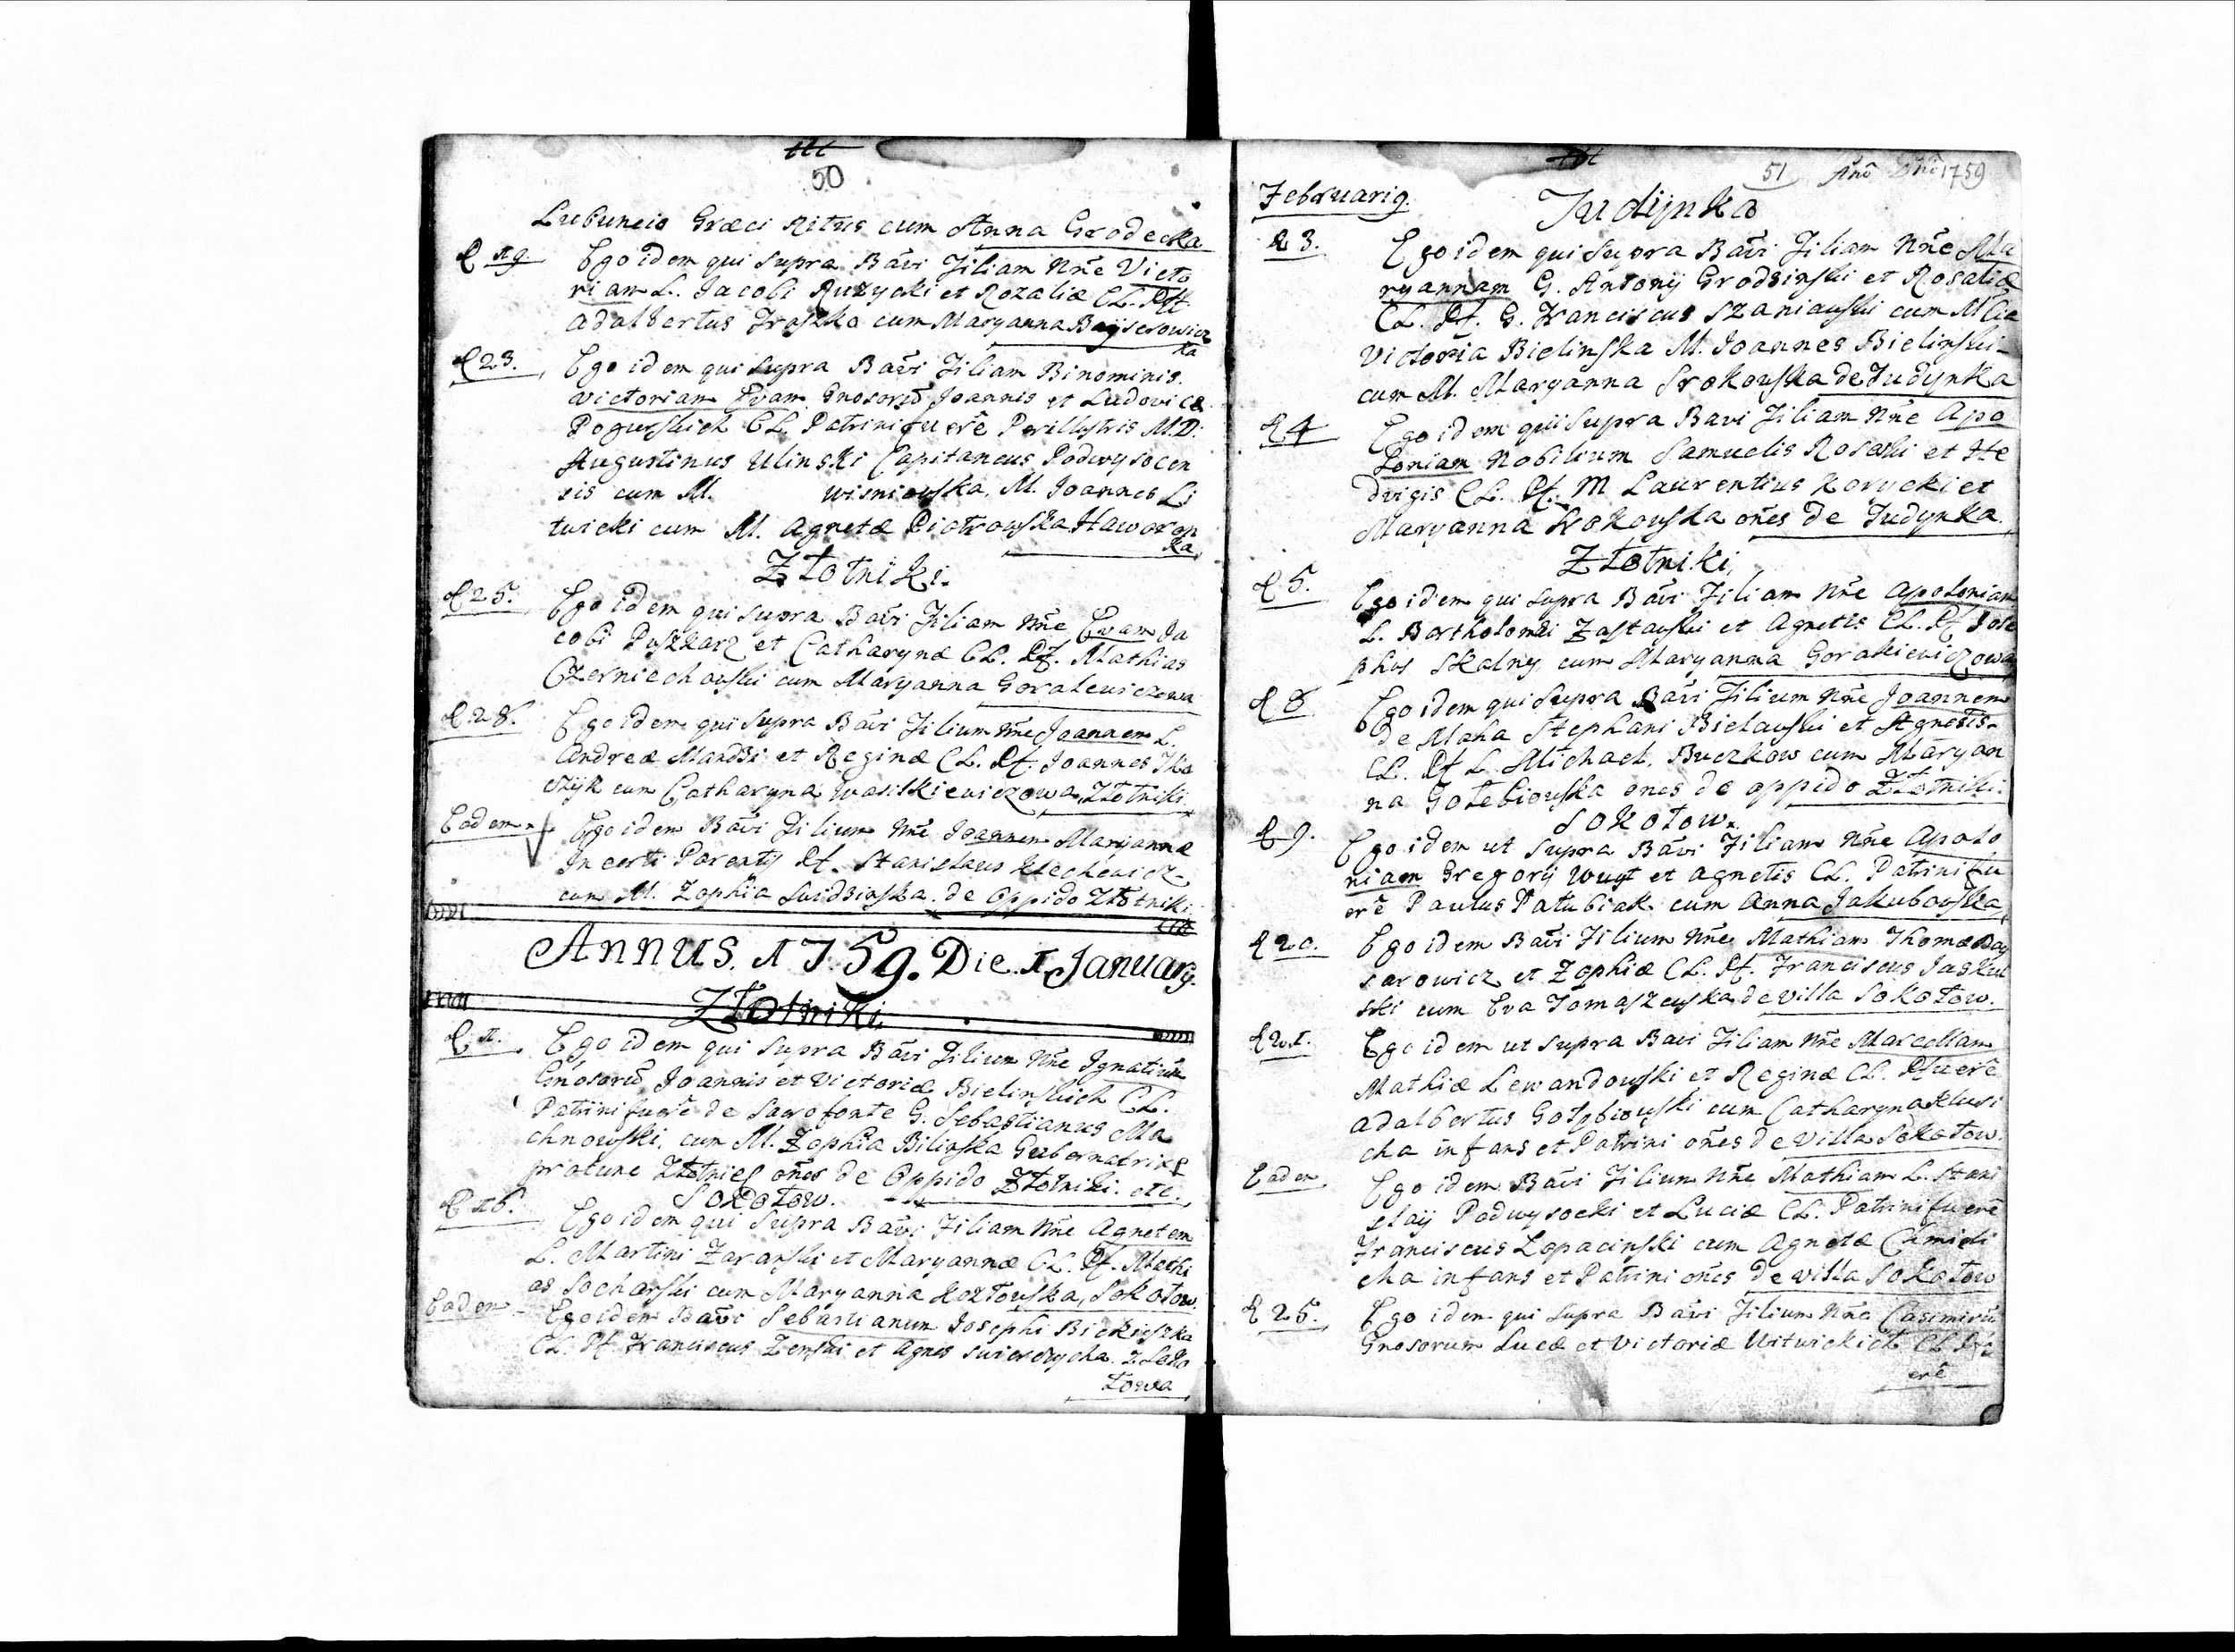 50
Lubuncio Græci Ritus cum Anna Grodecka
D 19. Ego idem qui supra Bãvi Filiam Nñe Victo
riam L. Jacobi Ruzycki et Rozaliæ CL. Pff.
Adalbertus Fraszka cum Maryanna Bayserowicz
ka
D 23. Ego idem qui supra Bãvi Filiam Binominis.
Victoriam Evam Gnosorũ Joannis et Ludovicæ
Pogurskich CL. Patrini fuerẽ Perillustris M.D.
Augustinus Ulinski Capitaneus Podwysocen
sis cum M. Wisniowska, M. Joannes Li
twicki cum M. Agnetæ Piotrowska Haworon
ka
Złotniki.
D 25. Ego idem qui supra Bãvi Filiam Nñe Evam Ja
cobi Puszkarz et Catharynæ CL. Pf. Mathias
Czerniechowski cum Maryanna Goralewiczowa
D 28. Ego idem qui supra Bãvi Filium Nñe Joannem L.
Andreæ Mandzi et Reginæ CL. Pf. Joannes Tka
czyk cum Catharyna Wasilkiewiczowa, Złotniki
Eodem Ego idem Bãvi Filium Nñe Joannem Maryannæ
Incerti Parentis Pf. Stanislaus Klechowicz
cum M. Zophia Swidzinska. de Oppido Złotniki
Annus. 1759. Die 1 Januarij.
Złotniki
D 1. Ego idem qui supra Bãvi Filium Nñe Ignatium
Gnosorũ Joannis et Victoriæ Bielinskich CL.
Patrini fuerẽ de Sacro fonte G. Sebastianus Ma
chnowski, cum M. Zophia Bilinska Gubernatrix
pro tunc Złotnices oñes de Oppido Złotniki. etc.
Sokołow.
D 16. Ego idem qui supra Bãvi Filiam Nñe Agnetem
L. Martini Zaranski et Maryannæ CL. Pf. Mathi
as Socharski cum Maryanna Kozłowska, Sokołow.
Eodem Ego idem Bãvi Sebastianum Josephi Bickieszka
CL. Pf. Franciscus Zenski et Agnes Swiercrycha z Soko
łowa
51 Año Dñi 1759
Februarij.
Judynka
D 3. Ego idem qui supra Bãvi Filiam Nñe Ma
ryannam G. Antonij Grodzinski et Rosaliæ
CL. Pf. G. Franciscus Szaniawski cum Mlia
Victoria Bielinska M. Joannes Bielinski
cum M. Maryanna Srokowska de Judynka
D 4 Ego idem qui supra Bavi Filiam Nñe Apo
loniam Nobilium Samuelis Rosalski et He
dvigis CL. Pf. M Laurentius Korycki et
Maryanna Srokowska oñes de Judynka.
Złotniki
D 5. Ego idem qui supra Bãvi Filiam Nñe Apoloniam
L. Bartholomæi Zastawski et Agnetis CL. Pf. Jose
phus Skalny cum Maryanna Gorakiewiczowa
D 8 Ego idem qui supra Bãvi Filium Nñe Joannem
de Maha Stephani Bielawski et Agnetis
CL. Pf L. Michael, Buczkow cum Maryan
na Gołebiowska ones de oppido Złotniki.
Sokołow.
D 9. Ego idem ut supra Bãvi Filiam Nñe Apolo
niam Gregorij Wuyt et Agnetis CL. Patrini fu
erẽ Paulus Patubiak cum Anna Jakubowska,
D 20. Ego idem Bãvi Filium Nñe Mathiam Thomæ Bay
serowicz et Zophiæ CL. Pf. Franciscus Jaskul
ski cum Eva Tomaszewska de villa Sokołow.
D 21. Ego idem ut supra Bavi Filiam Nñe Marcellam
Mathiæ Lewandowski et Reginæ CL. Pfuerẽ
Adalbertus Gołębiowski cum Catharyna Klusi
cha infans et Patrini oñes de Villa Sokołow.
Eadem Ego idem Bãvi Filium Nñe Mathiam L. Stani
slaij Podwysocki et Luciæ CL. Patrini fuerẽ
Franciscus Łopacinski cum Agnetæ Chmieli
cha infans et Patrini oñes de villa Sokołow
D 25. Ego idem qui supra Bãvi Filium Nñe Casimirũ
Gnosorum Lucæ et Victoriæ Witwickich CL Pfu
erẽ